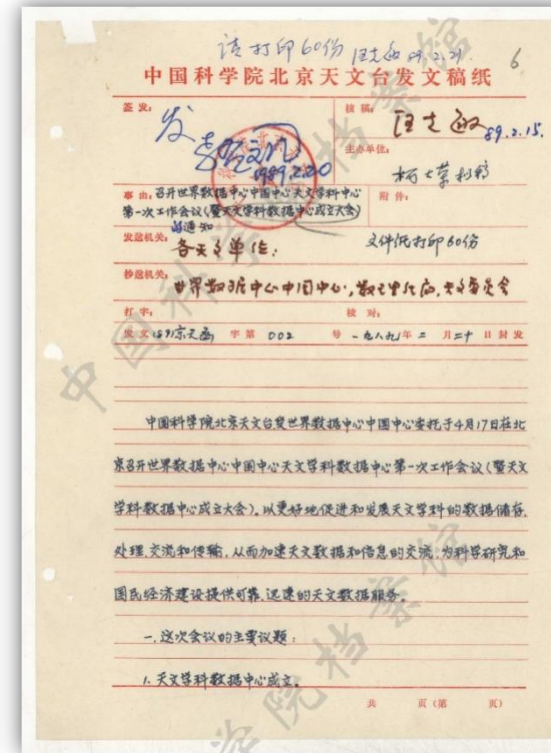 请打印60份 汪克敏 89.2.21.
6
中国科学院北京天文台发文稿纸
签发:
发
1989.2.20
核稿:
汪克敏 89.2.15.
主办单位:
事由: 召开世界数据中心中国中心天文学科中心
第一次工作会议(暨天文学科数据中心成立大会)
的通知
附件:
发送机关: 各天文单位:
文件纸打印60份
抄送机关: 世界数据中心中国中心,
打字:
校对:
发文(89)京天函 字第 002 号 一九八九年 二 月 二十 日封发
中国科学院北京天文台受世界数据中心中国中心委托于4月17日在北
京召开世界数据中心中国中心天文学科数据中心第一次工作会议(暨天文
学科数据中心成立大会)。以更好地促进和发展天文学科的数据储存、
处理、交流和传输,从而加速天文数据和信息的交流,为科学研究和
国民经济建设提供可靠、迅速的天文数据服务。
一、这次会议的主要议题:
1. 天文学科数据中心成立。
共 页(第 页)
中国科学院档案馆